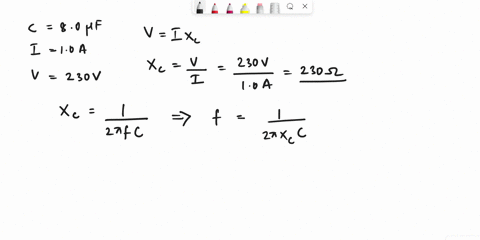 C = 8.0 μF
I = 1.0 A
V = 230 V
V = I Xc
Xc = V/I = 230V/1.0A = 230Ω
Xc = 1/2πfC ⇒ f = 1/2πXcC